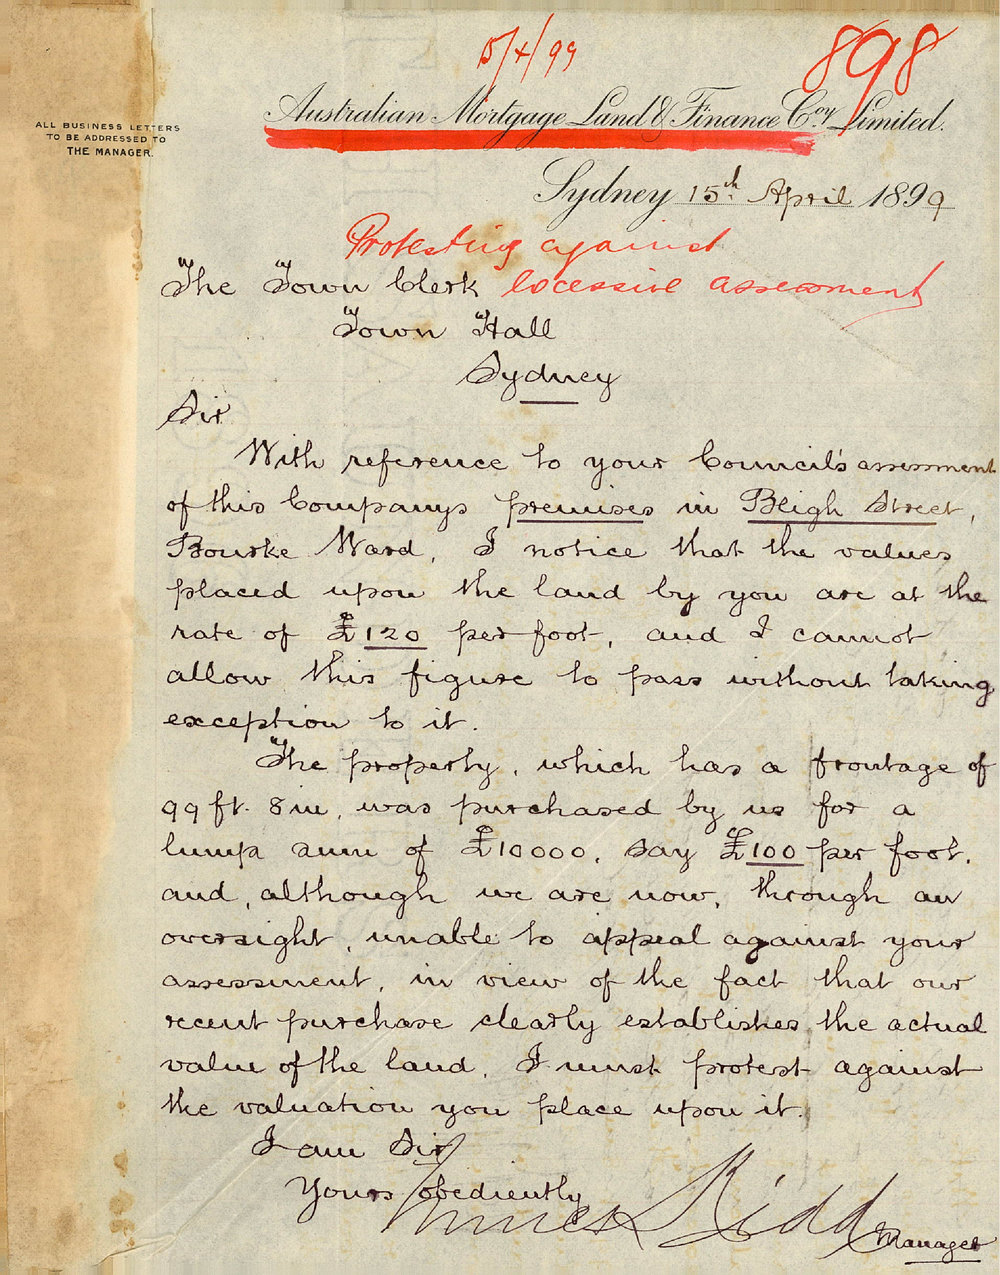 15/4/99
898
Australian Mortgage Land & Finance Coy Limited.
ALL BUSINESS LETTERS
TO BE ADDRESSED TO
THE MANAGER.
Sydney 15th April 1899
Protesting against
excessive assessment
The Town Clerk
Town Hall
Sydney
Sir
With reference to your Council's assessment
of this Companys premises in Bligh Street,
Bourke Ward, I notice that the values
placed upon the land by you are at the
rate of £120 per foot, and I cannot
allow this figure to pass without taking
exception to it.
The property, which has a frontage of
99 ft. 8 in, was purchased by us for a
lump sum of £10000, say £100 per foot,
and, although we are now, through an
oversight, unable to appeal against your
assessment, in view of the fact that our
recent purchase clearly establishes the actual
value of the land, I must protest against
the valuation you place upon it.
I am Sir
Yours obediently
James Kidd
Manager